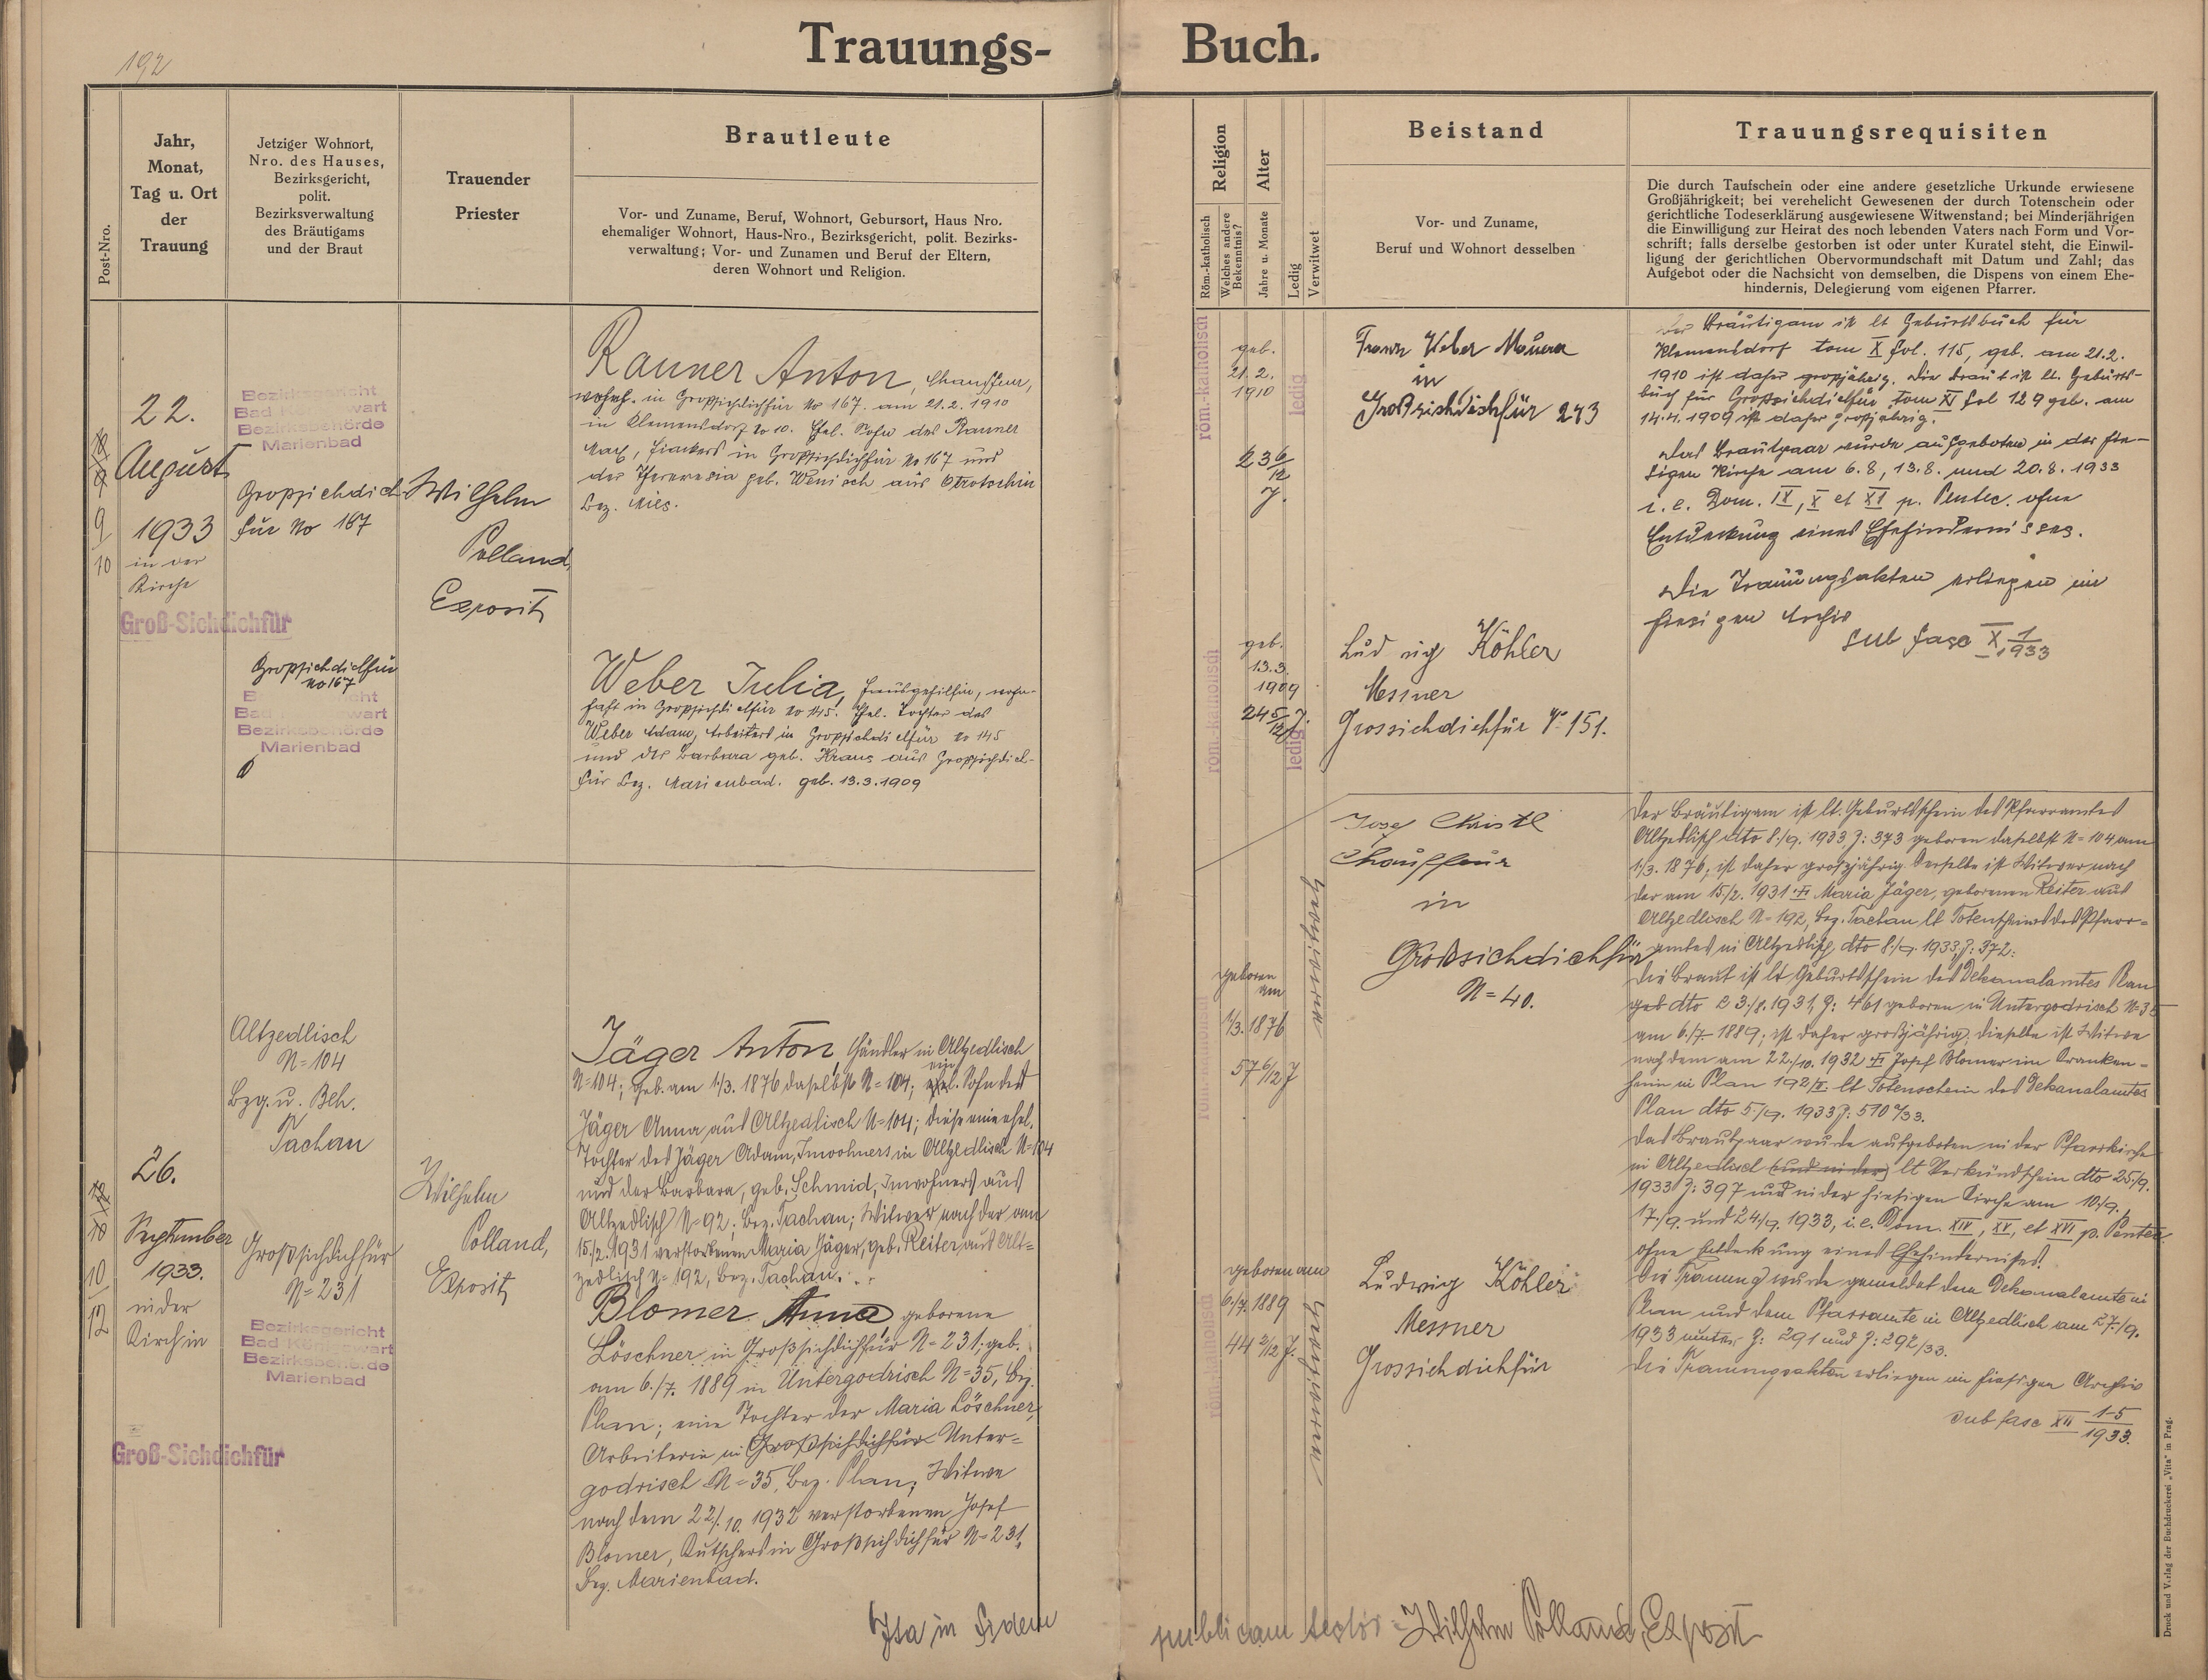 192
Trauungs-
Buch.
Post-Nro.
Jahr,
Monat,
Tag u. Ort
der
Trauung
Jetziger Wohnort,
Nro. des Hauses,
Bezirksgericht,
polit.
Bezirksverwaltung
des Bräutigams
und der Braut
Trauender
Priester
Brautleute
Vor- und Zuname, Beruf, Wohnort, Geburtsort, Haus Nro.
ehemaliger Wohnort, Haus-Nro., Bezirksgericht, polit. Bezirks-
verwaltung; Vor- und Zunamen und Beruf der Eltern,
deren Wohnort und Religion.
Religion
Röm.-katholisch
Welches andere
Bekenntnis?
Alter
Jahre u. Monate
Ledig
Verwitwet
Beistand
Vor- und Zuname,
Beruf und Wohnort desselben
Trauungsrequisiten
Die durch Taufschein oder eine andere gesetzliche Urkunde erwiesene
Großjährigkeit; bei verehelicht Gewesenen der durch Totenschein oder
gerichtliche Todeserklärung ausgewiesene Witwenstand; bei Minderjährigen
die Einwilligung zur Heirat des noch lebenden Vaters nach Form und Vor-
schrift; falls derselbe gestorben ist oder unter Kuratel steht, die Einwil-
ligung der gerichtlichen Obervormundschaft mit Datum und Zahl; das
Aufgebot oder die Nachsicht von demselben, die Dispens von einem Ehe-
hindernis, Delegierung vom eigenen Pfarrer.
9
10
22.
August
1933
in der
Kirche
Groß-Sichdichfür
Bezirksgericht
Bad Königswart
Bezirksbehörde
Marienbad
Großsichdich
für No 167
Wilhelm
Polland,
Exposit
Rauner Anton, Chauffeur,
wohnh. in Großsichdichfür No 167. am 21.2.1910
in Klemensdorf No 10. Ehel. Sohn des Rauner
Marz, Fiackers in Großsichdichfür No 167 und
der Theresia geb. Wenisch aus Otrotschin
Bez. Mies.
röm.-katholisch
geb.
21.2.
1910
23 6/12
J.
ledig
Franz Weber Maurer
in
Großsichdichfür 243
Der Bräutigam ist lt Geburtsbuch für
Klemensdorf tom X fol. 115, geb. am 21.2.
1910 ist daher großjährig. Die Braut ist lt. Geburts-
buch für Großsichdichfür tom XI fol 129 geb. am
14.4.1909 ist daher großjährig.
Das Brautpaar wurde aufgeboten in der hie-
sigen Kirche am 6.8, 13.8. und 20.8. 1933
i. e. Dom. IX, X et XI p. Pentec. ohne
Entdeckung eines Ehehindernisses.
Die Trauungsakten erliegen im
hiesigen Archiv
sub fasc X 1/1933
Großsichdichfür
No 167
Bezirksgericht
Bad Königswart
Bezirksbehörde
Marienbad
Weber Julia, Hausgehilfin, wohn-
haft in Großsichdichfür No 145. Ehel. Tochter des
Weber Adam, Arbeiters in Großsichdichfür No 145
und der Barbara geb. Kraus aus Großsichdich-
für Bez. Marienbad. geb. 13.3.1909
röm.-katholisch
geb.
13.3.
1909
24 5/12 J.
ledig
Ludwig Köhler
Messner
Grossichdichfür No 151.
10
12
26.
September
1933.
in der
Kirche in
Groß-Sichdichfür
Altzedlisch
N=104
Bzg. u. Beh.
Tachau
Wilhelm
Polland,
Exposit
Jäger Anton, Händler in Altzedlisch
N=104; geb. am 1/3. 1876 daselbst N=104; ehel. Sohn der
Jäger Anna aus Altzedlisch N=104; diese eine ehel.
Tochter des Jäger Adam, Inwohners in Altzedlisch N=104
und der Barbara, geb. Schmid, Inwohners aus
Altzedlisch N=92, Bez. Tachau; Witwer nach der am
15/2. 1931 verstorbenen Maria Jäger, geb. Reiter, aus Alt-
zedlisch N=192, Bez. Tachau.
röm.-katholisch
geboren
am
1/3. 1876
57 6/12 J
verwitwet
Josef Christl
Chauffeur
in
Großsichdichfür
N=40.
Der Bräutigam ist lt. Geburtsschein des Pfarramtes
Altzedlisch dto 8./9. 1933, Z: 373 geboren daselbst N=104 am
1./3. 1876; ist daher großjährig. Derselbe ist Witwer nach
der am 15/2. 1931 † Maria Jäger, geborenen Reiter aus
Altzedlisch N=192, Bez. Tachau lt Totenscheines des Pfarr-
amtes in Altzedlisch dto 8./9. 1933, Z: 372.
Die Braut ist lt Geburtsschein des Dekanalamtes Plan
geb dto 23./8.1931, Z: 461 geboren in Untergodrisch N=35
am 6./7. 1889; ist daher großjährig; dieselbe ist Witwe
nach dem am 22./10. 1932 † Josef Blomer im Kranken-
heim in Plan 192/II. lt Totenschein des Dekanalamtes
Plan dto 5./9. 1933 Z: 510/33.
Das Brautpaar wurde aufgeboten in der Pfarrkirche
in Altzedlisch (und in der) lt Verkündschein dto 25./9.
1933 Z: 397 und in der hiesigen Kirche am 10./9.,
17./9. und 24./9. 1933, i. e. Dom. XIV, XV, et XVI p. Pentec
ohne Entdeckung eines Ehehindernisses.
Die Trauung wurde gemeldet dem Dekanalamte in
Plan und dem Pfarramte in Altzedlisch am 27./9.
1933 unter Z: 291 und Z: 292/33.
Die Trauungsakten erliegen im hiesigen Archiv
sub fasc XII 1-5/1933.
Großsichdichfür
N=231
Bezirksgericht
Bad Königswart
Bezirksbehörde
Marienbad
Blomer Anna, geborene
Löschner in Großsichdichfür N=231; geb.
am 6./7. 1889 in Untergodrisch N=35, Bez.
Plan; eine Tochter der Maria Löschner,
Arbeiterin in Großsichdichfür Unter-
godrisch N=35, Bez. Plan; Witwe
nach dem 22./10. 1932 verstorbenen Josef
Blomer, Kutschers in Großsichdichfür N=231,
Bez. Marienbad.
röm.-katholisch
geboren am
6./7. 1889
44 2/12 J.
Ludwig Köhler
Messner
Grossichdichfür
Ita in fidem
publicam testor: Wilhelm Polland, Exposit
Druck und Verlag der Buchdruckerei „Vita" in Prag.